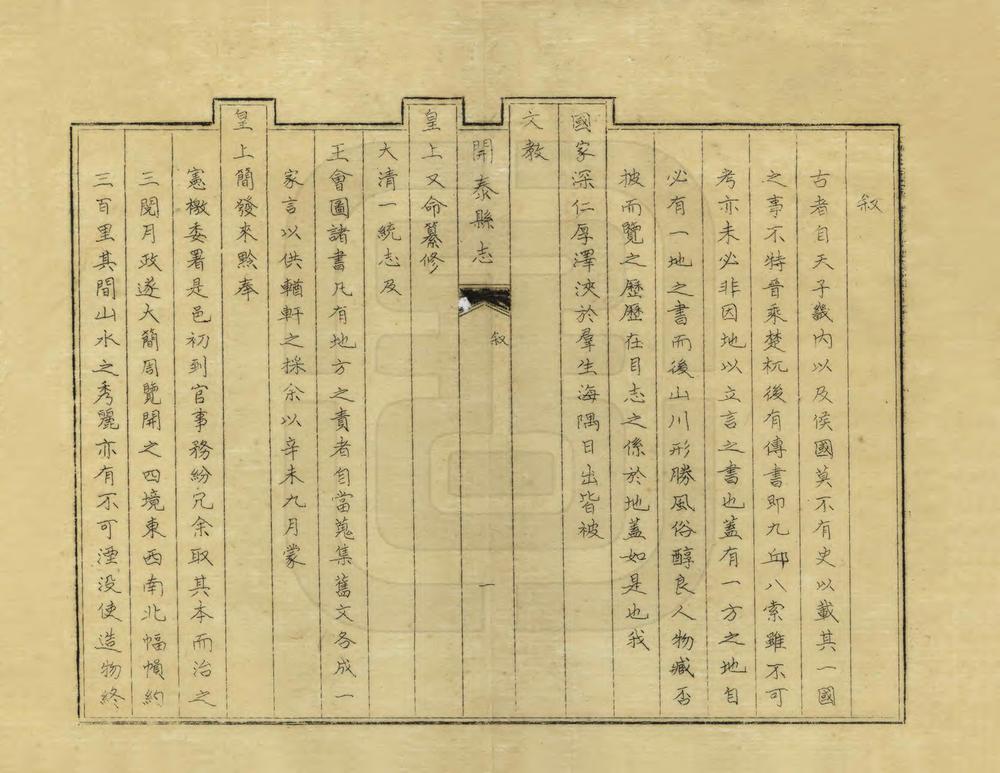 叙
古者自天子畿内以及侯國莫不有史以載其一國
之事不特晉乘楚杌後有傳書即九邱八索雖不可
考亦未必非因地以立言之書也蓋有一方之地自
必有一地之書而後山川形勝風俗醇良人物臧否
披而覽之歷歷在目志之係於地蓋如是也我
國家深仁厚澤浹於羣生海隅日出皆被
文教
開泰縣志
叙
一
皇上又命纂修
大清一統志及
王會圖諸書凡有地方之責者自當蒐集舊文各成一
家言以供輶軒之採余以辛未九月蒙
皇上簡發來黔奉
憲檄委署是邑初到官事務紛冗余取其本而治之
三閱月政遂大簡周覽開之四境東西南北幅幀約
三百里其間山水之秀麗亦有不可湮没使造物終